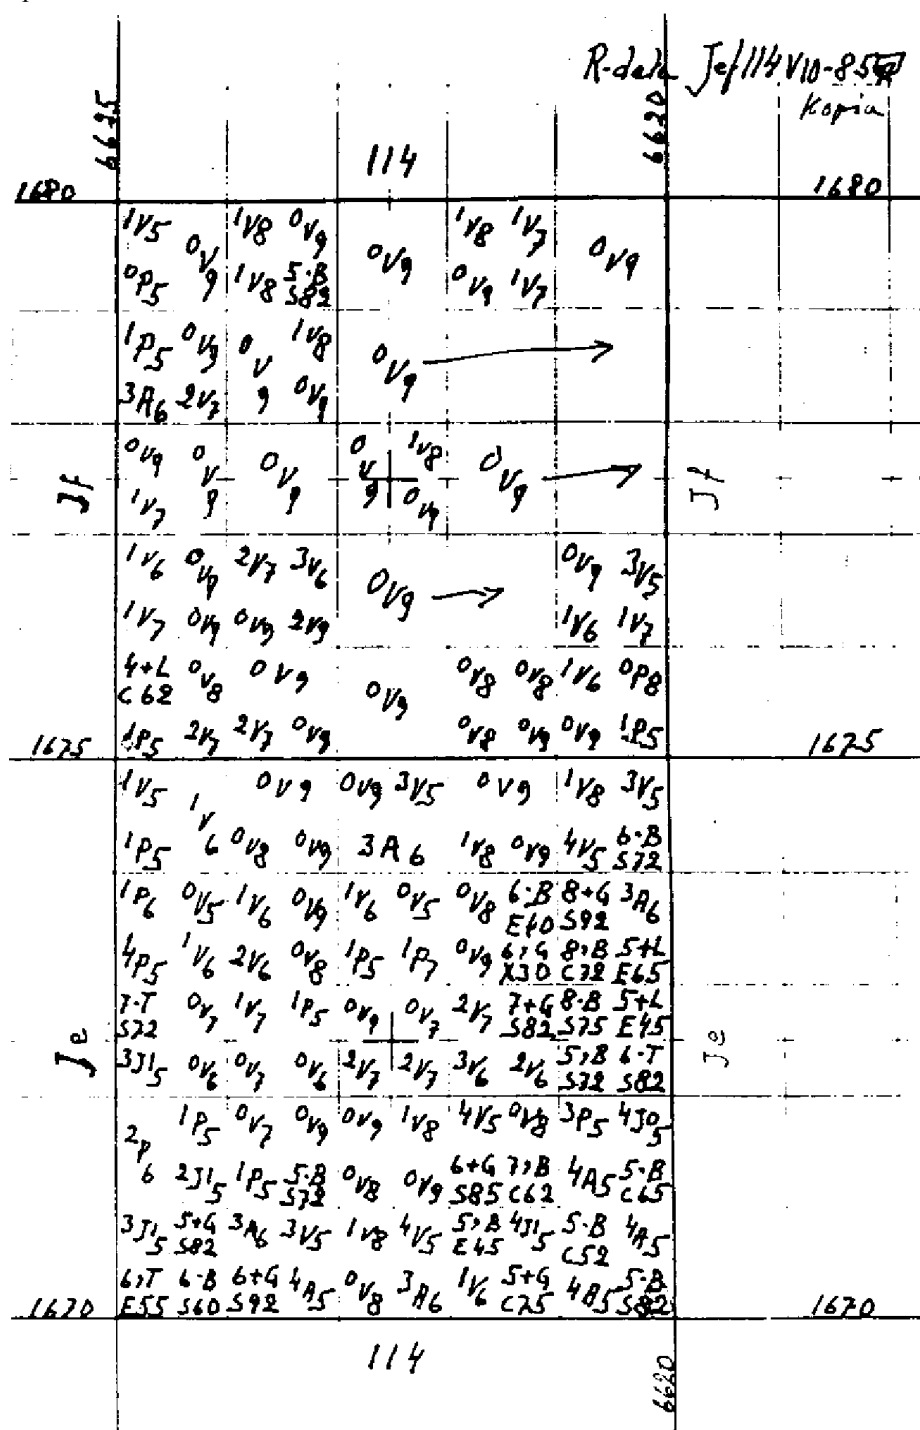 R-data Jef/114 V10-85
Kopia
6625 6620
114
1680 1680
1V5 0V9 1V8 0V9 0V9 1V8 1V7 0V9
0P5 1V8 5-B 0V9 1V7
S82
1P5 0V9 0V9 1V8 0V9
3A6 2V7 0V9
0V9 0V9 0V9 0V9 1V8 0V9
Jf Jf
1V7 0V9
1V6 0V9 2V7 3V6 0V9 0V9 3V5
1V7 0V9 0V9 2V9 1V6 1V7
4+L 0V8 0V9 0V9 0V8 0V8 1V6 0P8
C62
1P5 2V7 2V7 0V9 0V8 0V9 0V9 1P5
1675 1675
1V5 1V6 0V9 0V9 3V5 0V9 1V8 3V5
1P5 0V8 0V9 3A6 1V8 0V9 4V5 6-B
S72
1P6 0V5 1V6 0V9 1V6 0V5 0V8 6-B 8+G 3A6
S92
4P5 1V6 2V6 0V8 1P5 1P7 0V9 8>B 5+L
X30 C72 E65
7-T 0V7 1V7 1P5 0V9 0V7 2V7 7+G 8-B 5+L
S72 S82 S75 E45
Je Je
3J15 0V6 0V7 0V6 2V7 2V7 3V6 2V6 5>B 6-T
S72 S82
2P6 1P5 0V7 0V9 0V9 1V8 4V5 0V8 3P5 4J05
2J15 1P5 5-B 0V8 0V9 6+G 7>B 4A5 5-B
S72 S85 C62 C65
3J15 5+G 3A6 3V5 1V8 4V5 5>B 4J15 5-B 4A5
S82 E45 C52
6>T 6-B 6+G 4A5 0V8 3A6 1V6 5+G 4A5 5-B
E55 S60 S92 C75 S82
1670 1670
114
6620